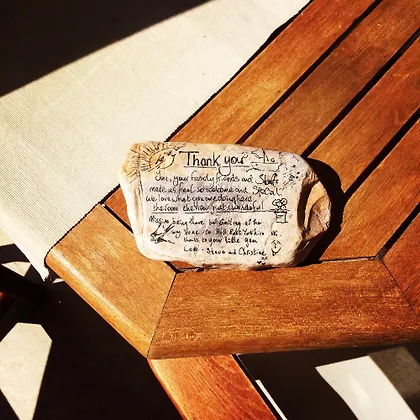 Thank you
You, your family, friends and Staff
made us feel so welcome and Special
we love what you are doing here
the food the view just wonderful
Miss being here but smiling at the
thanks to your little gem
Love Steve and Christine